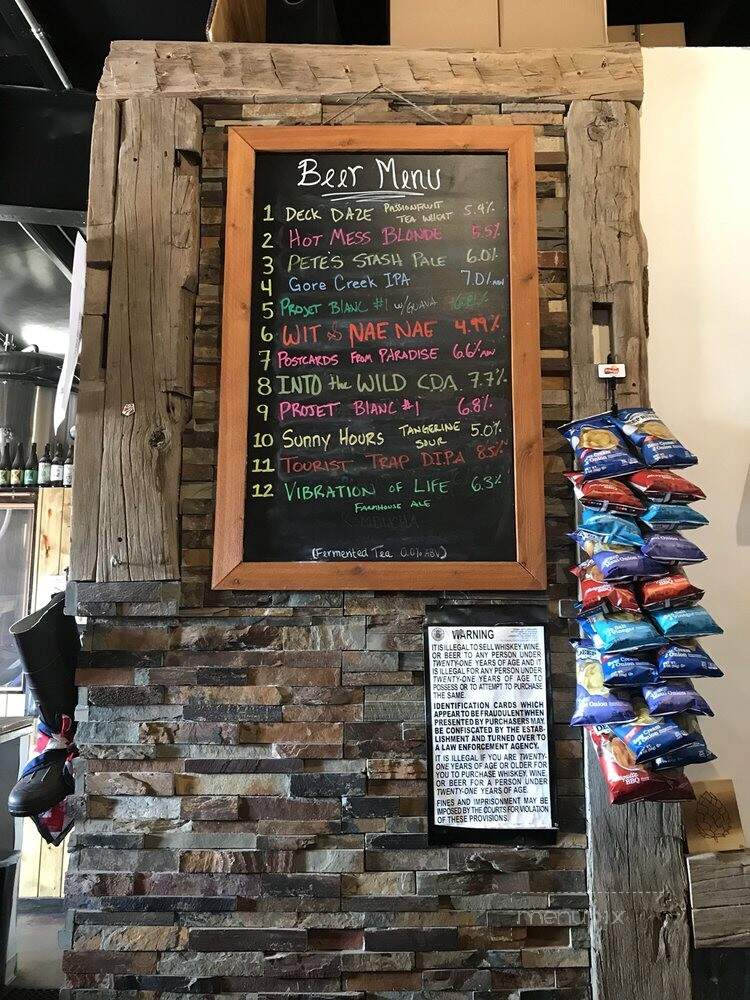 Beer Menu
1 DECK DAZE PASSIONFRUIT TEA WHEAT 5.4%
2 HOT MESS BLONDE 5.5%
3 PETE'S STASH PALE 6.0%
4 Gore Creek IPA 7.0%
5 PROJET BLANC #1 W/GUAVA
6 WIT NAE NAE 4.99%
7 POSTCARDS FROM PARADISE 6.6%
8 INTO the WILD CDA 7.7%
9 PROJET BLANC #1 6.8%
10 Sunny Hours TANGERINE SOUR 5.0%
11 TOURIST TRAP D.I.P.A 8.5%
12 VIBRATION OF LIFE 6.3%
FARMHOUSE ALE
(Fermented Tea 0.0% ABV)
WARNING
IT IS ILLEGAL TO SELL WHISKEY, WINE,
OR BEER TO ANY PERSON UNDER
TWENTY-ONE YEARS OF AGE AND IT
IS ILLEGAL FOR ANY PERSON UNDER
TWENTY-ONE YEARS OF AGE TO
POSSESS OR TO ATTEMPT TO PURCHASE
THE SAME.
IDENTIFICATION CARDS WHICH
APPEAR TO BE FRAUDULENT WHEN
PRESENTED BY PURCHASERS MAY
BE CONFISCATED BY THE ESTAB-
LISHMENT AND TURNED OVER TO
A LAW ENFORCEMENT AGENCY.
IT IS ILLEGAL IF YOU ARE TWENTY-
ONE YEARS OF AGE OR OLDER FOR
YOU TO PURCHASE WHISKEY, WINE,
OR BEER FOR A PERSON UNDER
TWENTY-ONE YEARS OF AGE.
FINES AND IMPRISONMENT MAY BE
IMPOSED BY THE COURTS FOR VIOLATION
OF THESE PROVISIONS.